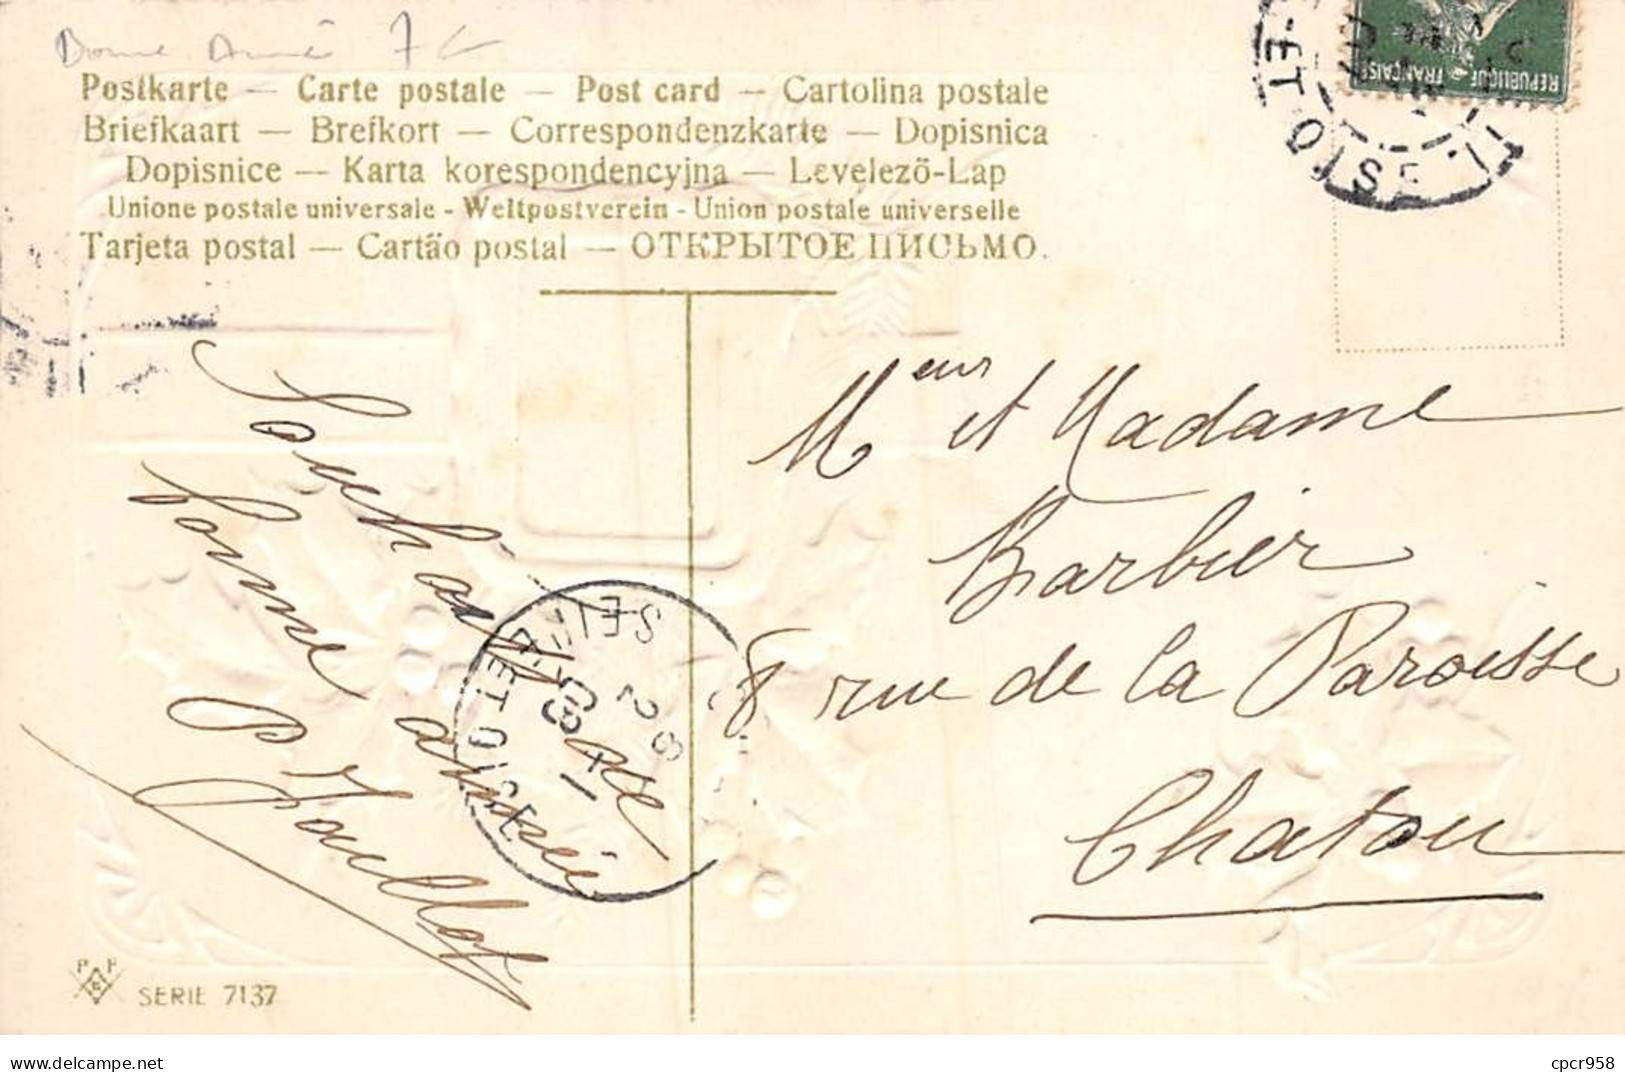 Bonne Année 7
Postkarte — Carte postale — Post card — Cartolina postale
Briefkaart — Brefkort — Correspondenzkarte — Dopisnica
Dopisnice — Karta korespondencyjna — Levelezö-Lap
Unione postale universale - Weltpostverein - Union postale universelle
Tarjeta postal — Cartão postal — ОТКРЫТОЕ ПИСЬМО.
REPUBLIQUE FRANÇAISE
ET OISE
Souhaits de
bonne année
P Jaullot
SEINE ET OISE
Meur et Madame
Barbier
8 rue de la Paroisse
Chatou
P P
SERIE 7137
www.delcampe.net
cpcr958